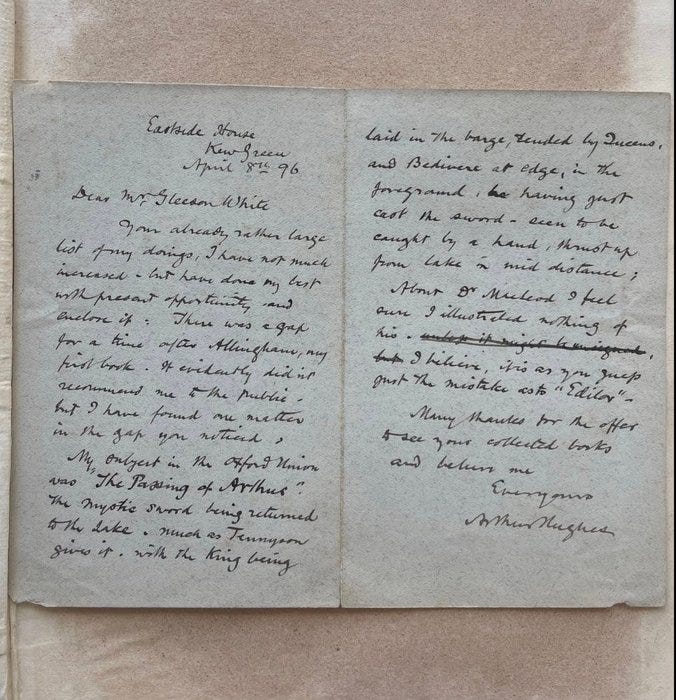 Eastside House
Kew Green
April 8th 96
Dear Mr. Gleeson White
Your already rather large
list of my doings, I have not much
increased - but have done my best
with present opportunity and
enclose it. There was a gap
for a time after Allingham, my
first book. It evidently didn't
recommend me to the public -
but I have found one matter
in the gap you noticed,
My subject in the Oxford Union
was "The Passing of Arthur".
The mystic sword being returned
to the lake. much as Tennyson
gives it. with the King being
laid in the barge, tended by Queens,
and Bedivere at edge, in the
foreground, he having just
cast the sword - seen to be
caught by a hand, thrust up
from lake in mid distance;
About Dr Macleod I feel
sure I illustrated nothing of
his. unless it might be unsigned,
but I believe, it is as you guess
just the mistake as to "Editor" -
Many thanks for the offer
to see your collected books
and believe me
Ever yours
Arthur Hughes